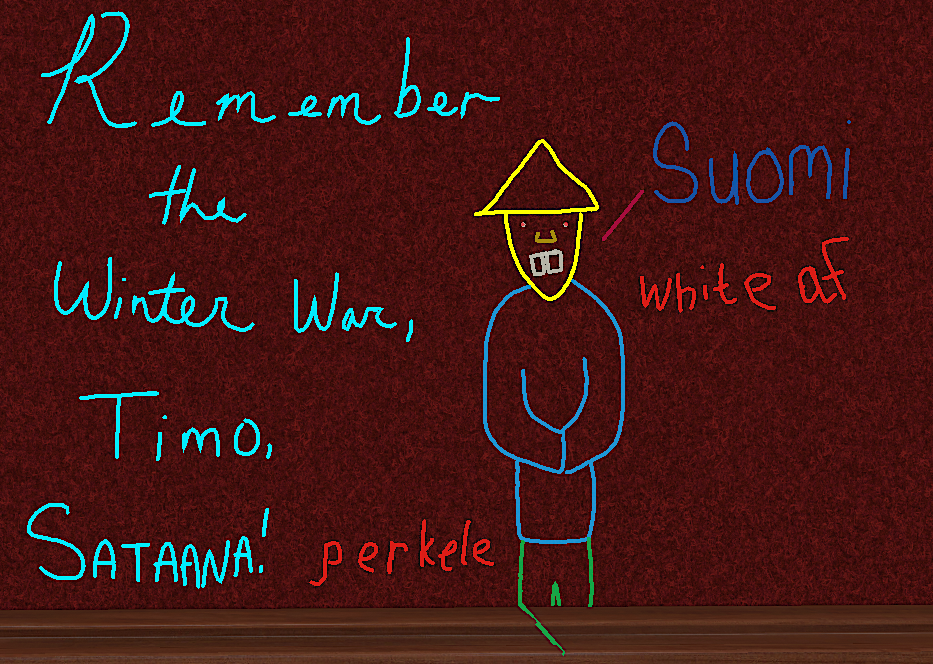 Remember
the
Winter War,
Timo,
SATAANA!
perkele
Suomi
white af